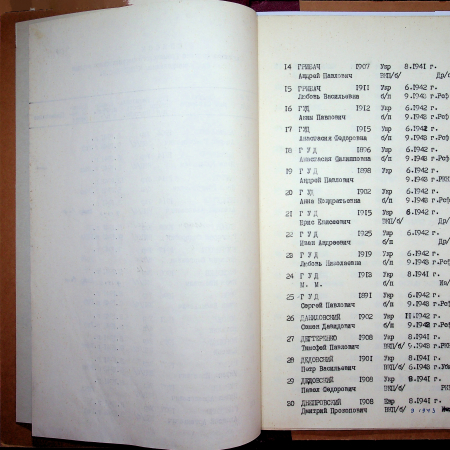 14 ГРИБАЧ 1907 Укр 8.1941 г.
Андрей Павлович ВКП/б/ Др/
15 ГРИБАЧ 1911 Укр 6.1942 г.
Любовь Васильевна б/п 9.1943 г.Роф
16 ГУД 1912 Укр 6.1942 г.
Анна Павлович б/п 9.1943 г.Роф
17 ГУД 1915 Укр 6.1942 г.
Анастасия Федоровна б/п 9.1943 г.Роф
18 Г У Д 1896 Укр 6.1942 г.
Анастасия Филипповна б/п 9.1943 г.Роф
19 Г У Д 1898 Укр 6.1942 г.
Андрей Павлович б/п 9.1943 г.РКК
20 Г УД 1902 Укр 6.1942 г.
Анна Кондратьевна б/п 9.1943 г.Роф
21 Г У Д 1915 Укр 8.1942 г.
Елисеевич ВКП/б/ Др/
22 Г У Д 1925 Укр 6.1942 г.
Иван Андреевич б/п Др/
23 Г У Д 1919 Укр 6.1942 г.
Любовь Николаевна б/п 9.1943 г.Роф
24 Г У Д 1913 Укр 8.1941 г.
М. М. б/п
25 Г У Д 1891 Укр 6.1942 г.
Сергей Павлович б/п 9.1943 г.Роф
26 ДАНИЛОВСКИЙ 1902 Укр 11.1942 г.
Семен Давидович б/п 9.1943 г.Роф
27 ДЕГТЯРЕНКО 1908 Укр 8.1941 г.
Тимофей Павлович ВКП/б/ 9.1943 г.РКК
28 ДЕДОВСКИЙ 1901 Укр 8.1941 г.
Петр Васильевич ВКП/б/ 6.1943 г.Уби
29 ДЕДОВСКИЙ 1908 Укр 8.1941 г.
Павел Федорович ВКП/б/ РКК
30 ДНЕПРОВСКИЙ 1908 Укр 8.1941 г.
Дмитрий Прокопович ВКП/б/ 9 1943